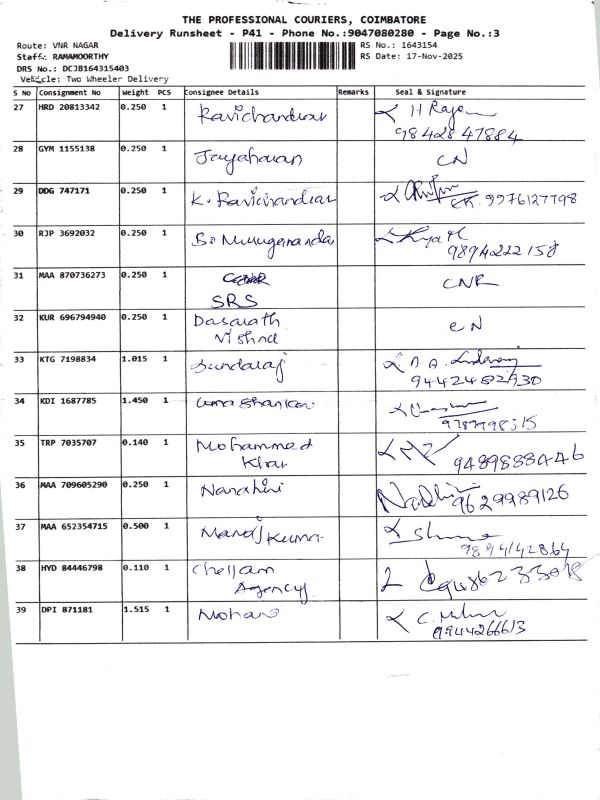 THE PROFESSIONAL COURIERS, COIMBATORE
Delivery Runsheet - P41 - Phone No.:9047080280 - Page No.:3
Route: VNR NAGAR RS No.: 1643154
Staff: RAMAMOORTHY RS Date: 17-Nov-2025
DRS No.: DCJB164315403
Vehicle: Two Wheeler Delivery
S No Consignment No Weight PCS Consignee Details Remarks Seal & Signature
27 HRD 20813342 0.250 1 Ravichandran H Rajan
9842847884
28 GYM 1155138 0.250 1 Jayaharan CN
29 DDG 747171 0.250 1 K. Ravichandran 9976127798
30 RJP 3692032 0.250 1 S. Murugananda
9894222158
31 MAA 870736273 0.250 1 CNR
SRS
32 KUR 696794940 0.250 1 Dasarath CN
Vishnu
33 KTG 7198834 1.015 1 Sundaraj
9442482930
34 KDI 1687785 1.450 1 Uma Shankar
9787798315
35 TRP 7035707 0.140 1 Mohammed
Khan 9489883446
36 MAA 709605290 0.250 1 Nanahini
9629989126
37 MAA 652354715 0.500 1 Manoj Kumar
9894142864
38 HYD 84446798 0.110 1 Chellam
Agency
39 DPI 871181 1.515 1 Mohan
9944266613